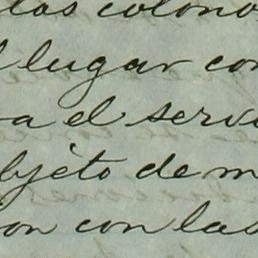 los colono
lugar con
a el servi
bjeto de m
on con las